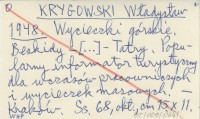 KRYGOWSKI Władysław
1948. Wycieczki górskie.
Beskidy [...] - Tatry. Popu-
larny informator turystyczny
dla wczasów pracowniczych
i wycieczek masowych. -
Kraków. Ss. 68, okt. cm 15 x 11.